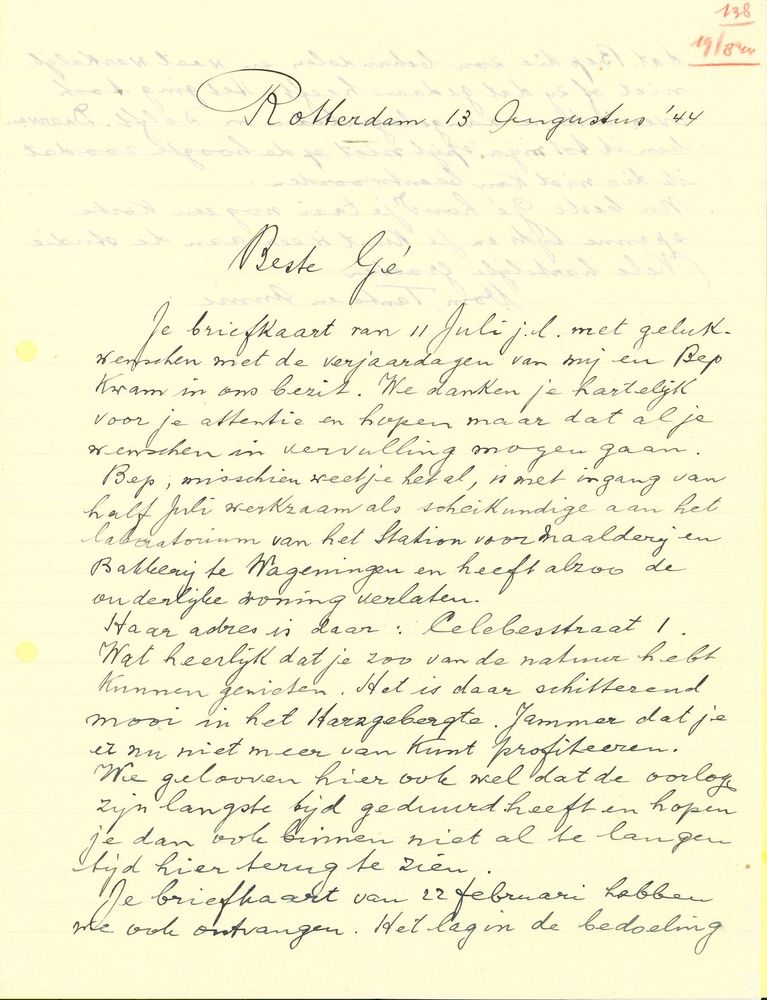 138
19/8 44
Rotterdam 13 Augustus '44
Beste Gé
Je briefkaart van 11 Juli j.l. met geluk-
wenschen met de verjaardagen van mij en Bep
kwam in ons bezit. We danken je hartelijk
voor je attentie en hopen maar dat al je
wenschen in vervulling mogen gaan.
Bep, misschien weet je het al, is met ingang van
half Juli werkzaam als scheikundige aan het
laboratorium van het Station voor Maalderij en
Bakkerij te Wageningen en heeft alzoo de
ouderlijke woning verlaten.
Haar adres is daar: Celebesstraat 1.
Wat heerlijk dat je zoo van de natuur hebt
kunnen genieten. Het is daar schitterend
mooi in het Harzgebergte. Jammer dat je
er nu niet meer van kunt profiteeren.
We gelooven hier ook wel dat de oorlog
zijn langste tijd geduurd heeft en hopen
je dan ook binnen niet al te langen
tijd hier terug te zien.
Je briefkaart van 22 februari hebben
we ook ontvangen. Het lag in de bedoeling